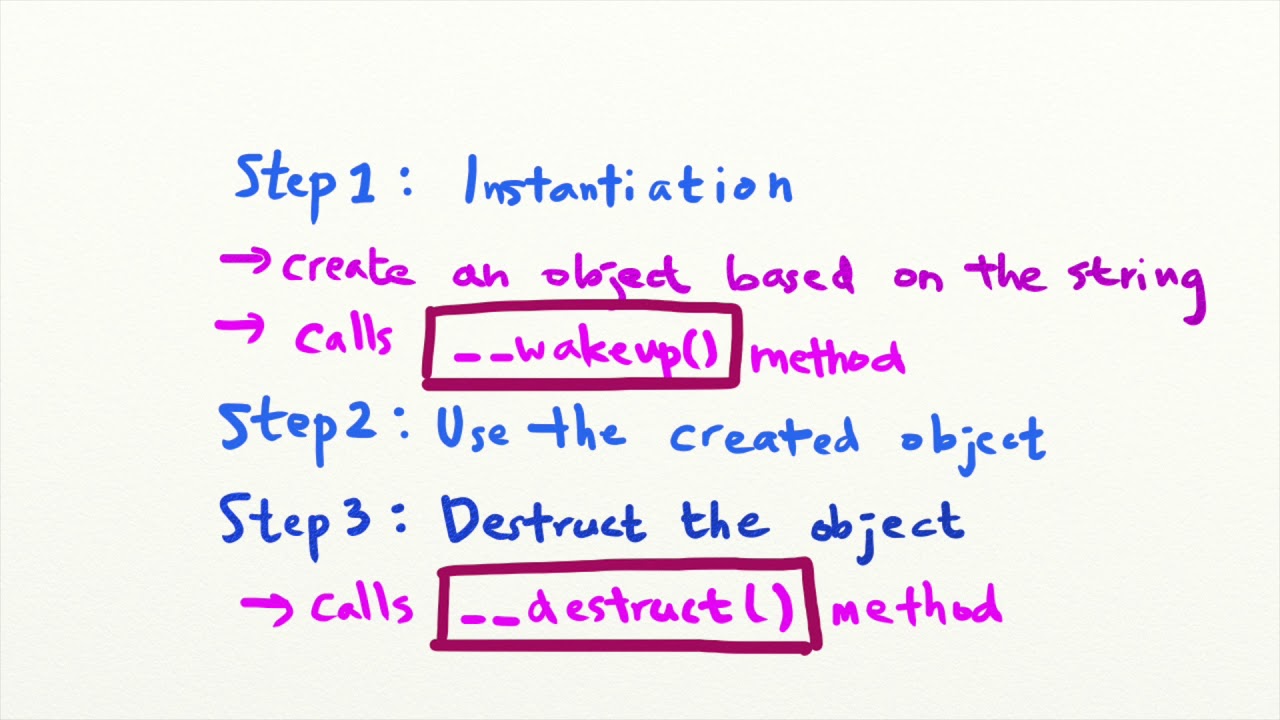 Step 1: Instantiation
→ create an object based on the string
→ calls __wakeup() method
Step 2: Use the created object
Step 3: Destruct the object
→ calls __destruct() method